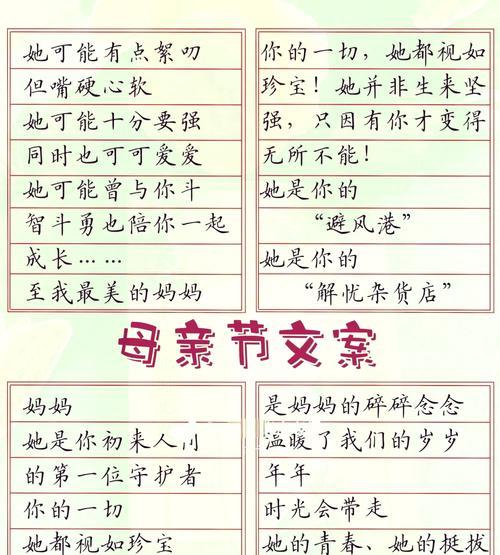 她可能有点絮叨
但嘴硬心软
她可能十分要强
同时也可可爱爱
她可能曾与你斗
智斗勇也陪你一起
成长……
至我最美的妈妈
你的一切，她都视如
珍宝！她并非生来坚
强，只因有你才变得
无所不能！
她是你的
“避风港”
她是你的
“解忧杂货店”
母亲节文案
妈妈
她是你初来人间
的第一位守护者
你的一切
她都视如珍宝
是妈妈的碎碎念念
温暖了我们的岁岁
年年
时光会带走
她的青春、她的挺拔